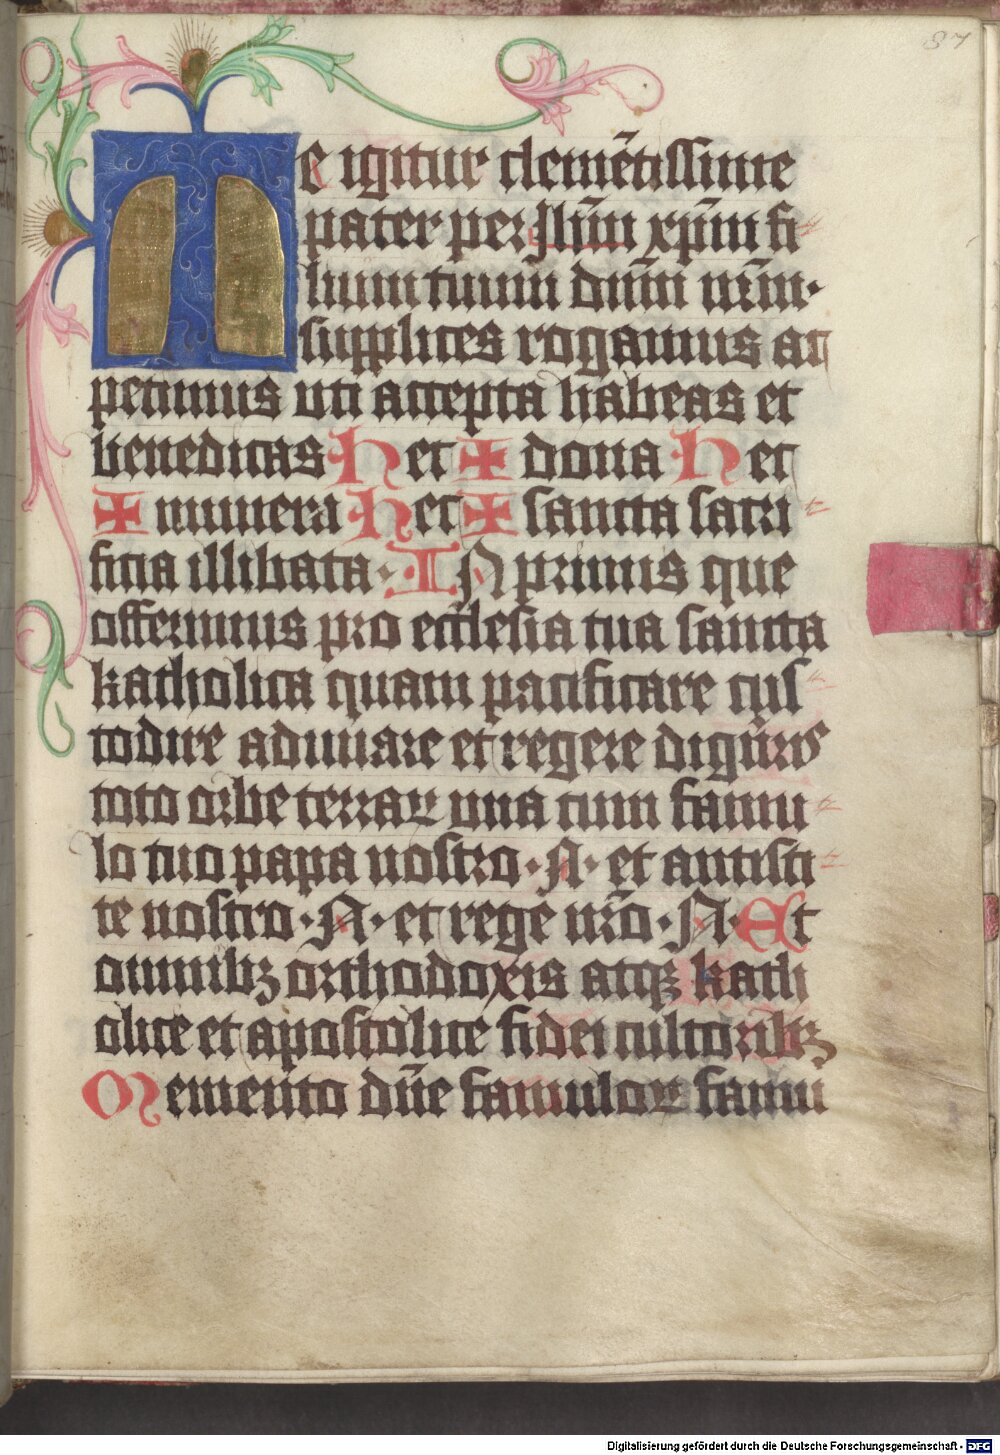 87
Te igitur clemētissime
pater per Jhūm xp̄m fi
lium tuum dūm nr̄m·
supplices rogamus ac
petimus uti accepta habeas et
benedicas h ec ✠ dona h ec
✠ munera h ec ✠ sancta sacri
ficia illibata· IN primis que
offerimus pro ecclesia tua sancta
katholica quam pacificare cus
todire adunare et regere digneris
toto orbe terraꝝ una cum famu
lo tuo papa nostro · N · et antisti
te nostro · N · et rege nr̄o · N · Et
omnibꝫ orthodoxis atqꝫ kath
olice et apostolice fidei cultoribꝫ
Memento dn̄e famuloꝝ famu
Digitalisierung gefördert durch die Deutsche Forschungsgemeinschaft - DFG